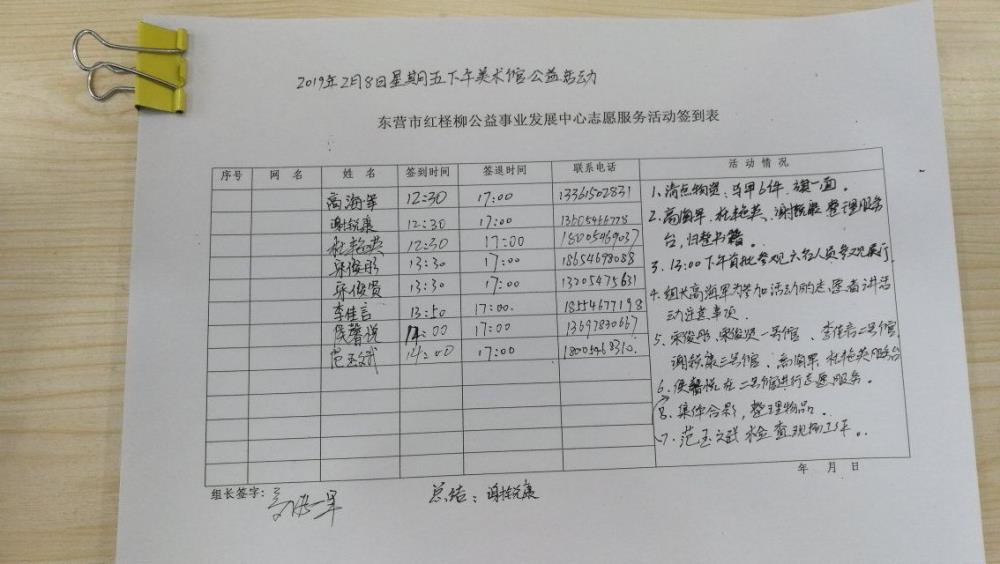 2019年2月8日星期五下午美术馆公益活动
东营市红柽柳公益事业发展中心志愿服务活动签到表
序号 网名 姓名 签到时间 签退时间 联系电话 活动情况
高海军 12:30 17:00 13361502831
谢锐康 12:30 17:00 13605466778
杜艳英 12:30 17:00 18005469037
宋俊彤 13:30 17:00 18654678088
宋俊贤 13:30 17:00 13205475631
李佳言 13:50 17:00. 18554677198
侯馨悦 14:00 17:00 13697830667
范玉斌 14:00 17:00 18005468310.
1、清点物资、马甲6件,旗一面。
2、高海军、杜艳英、谢锐康整理服务
台,归整书籍。
3、13:00下午首批参观六名人员参观展厅
4、组长高海军为参加活动的志愿者讲活
动注意事项.
5、宋俊彤、宋俊贤一号馆、李佳言二号馆
谢锐康三号馆、高海军、杜艳英服务台
6、侯馨悦在二号馆进行志愿服务。
8、集体合影,整理物品.
7、范玉斌检查现场工作。
年 月 日
组长签字:高海军
总结:谢锐康